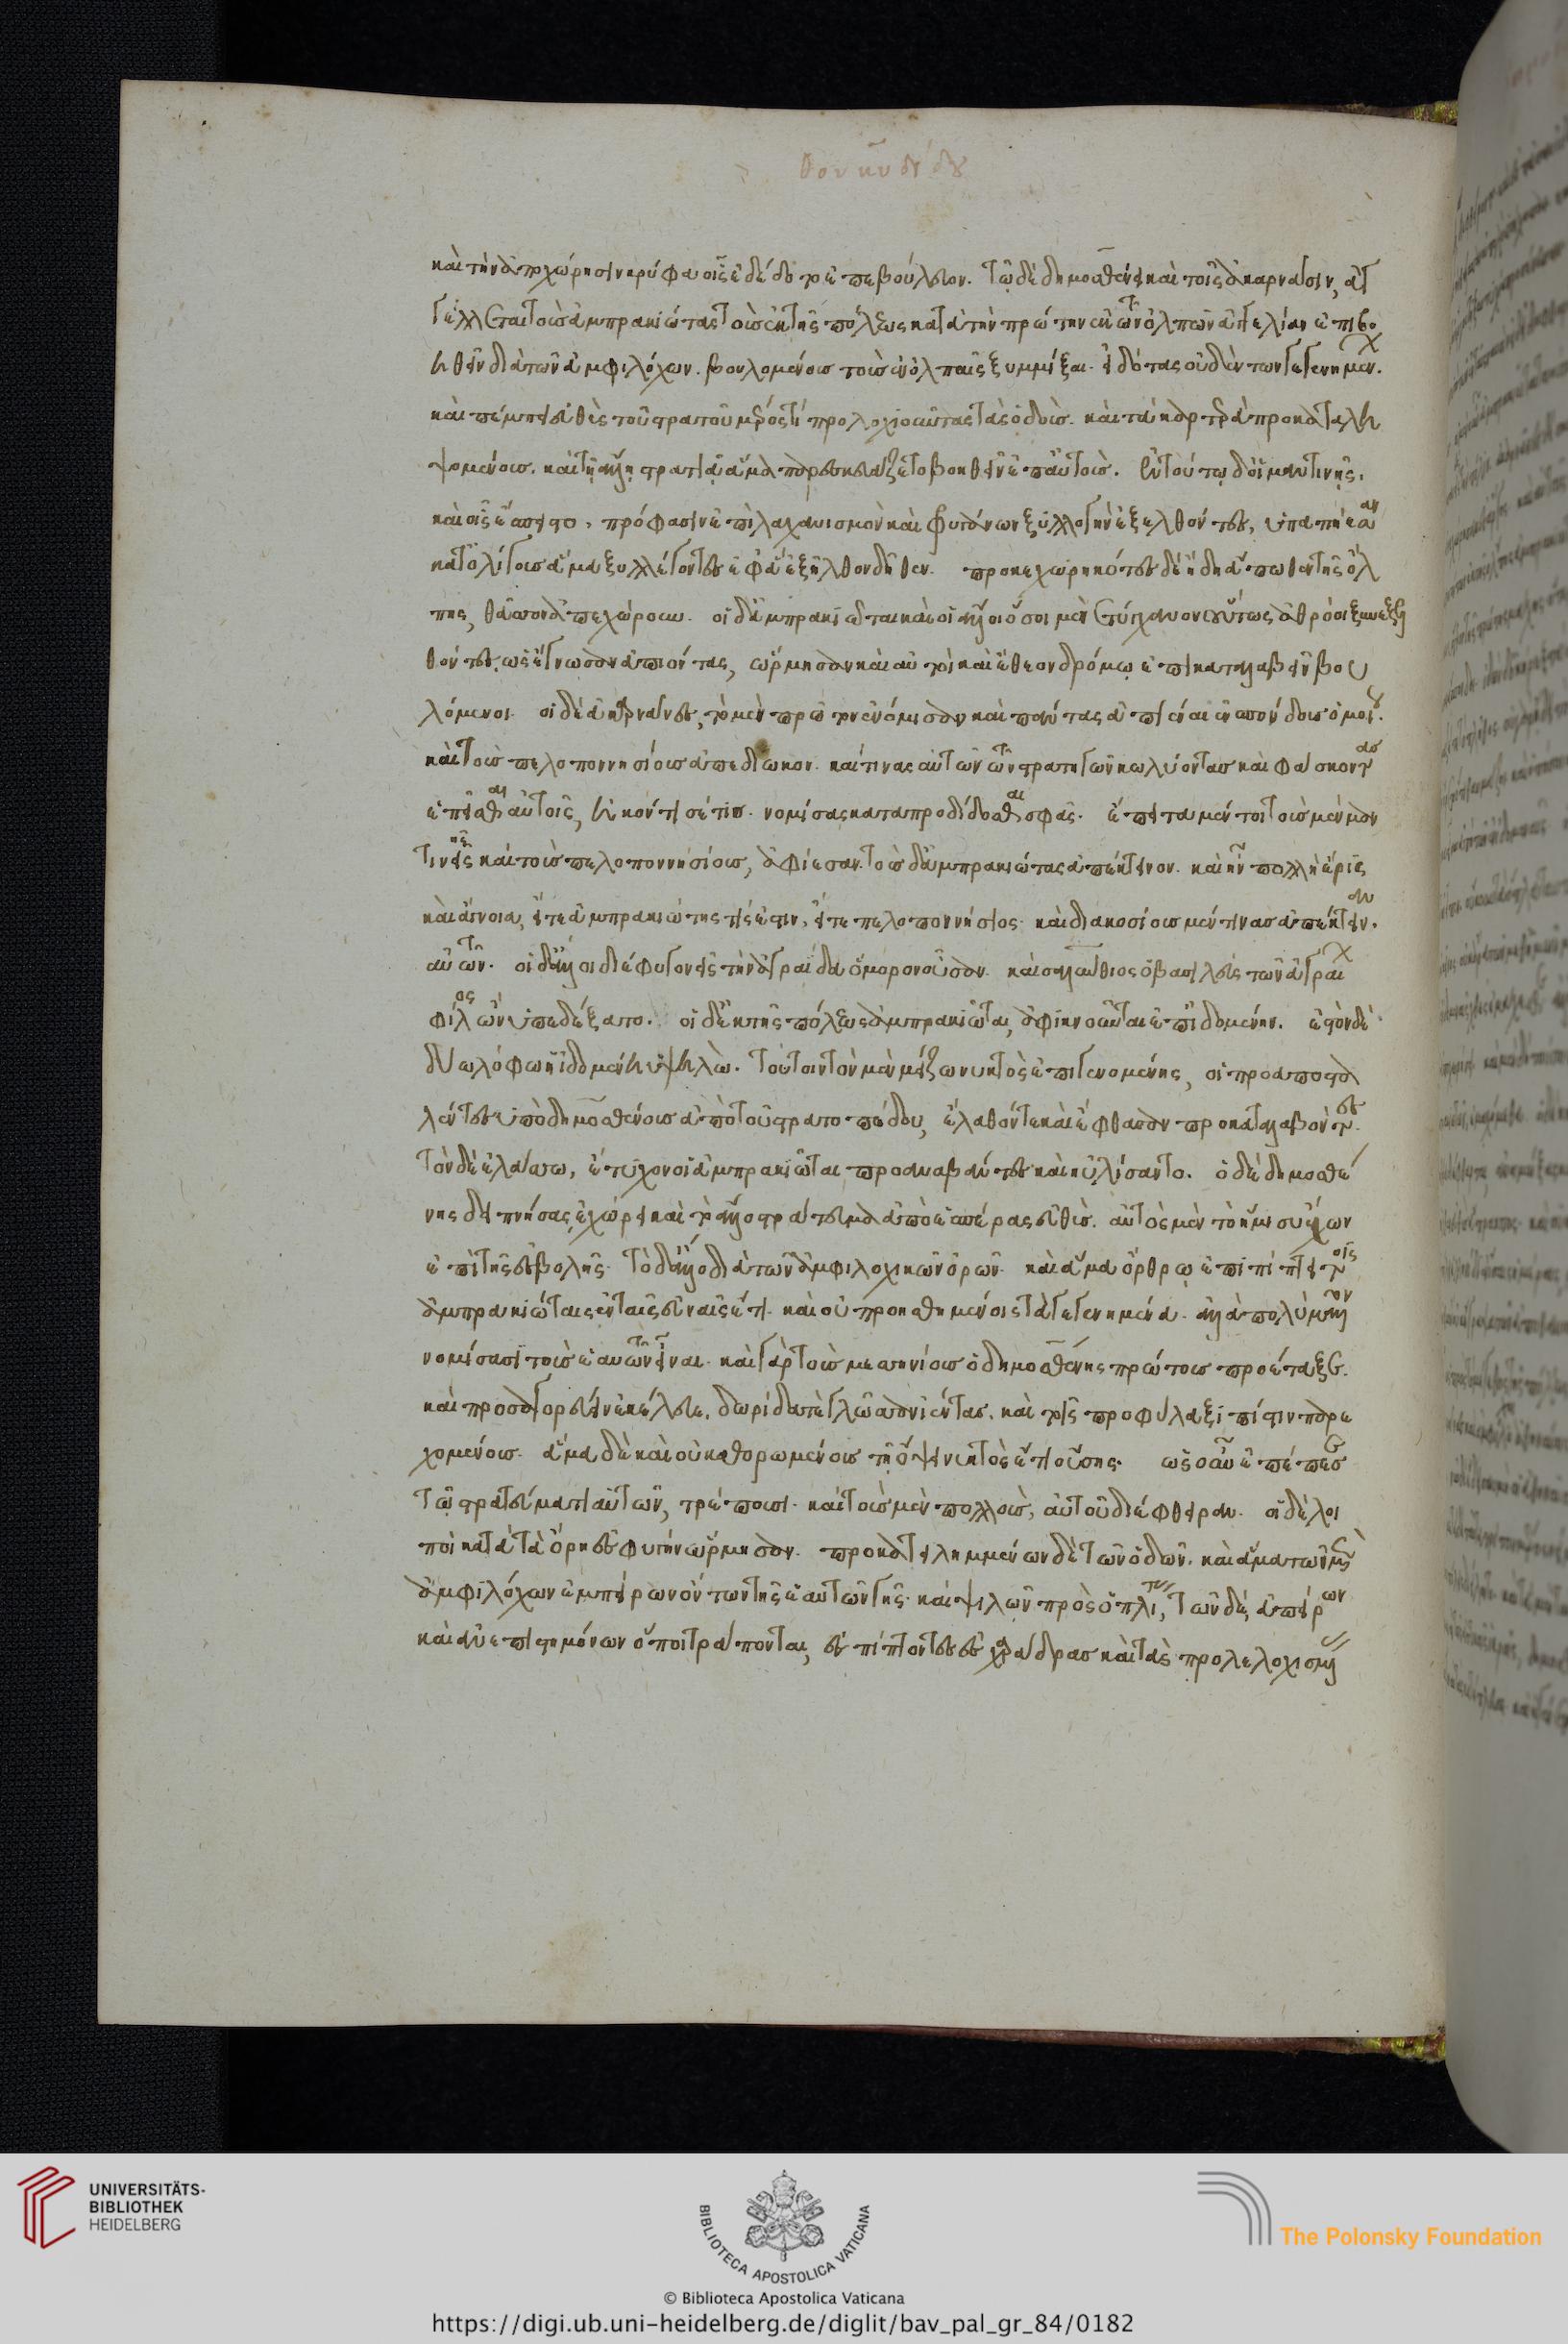 θουκυδίδου
καὶ τὴν ἀποχώρησιν κρύφα οἷς ἐδέδοτο ἐπεβούλευον. τῷ δὲ δημοσθένει καὶ τοῖς ἀκαρνᾶσιν, ἀγ
γέλλεται τοὺς ἀμπρακιώτας τοὺς ἐκ τῆς πόλεως κατὰ τὴν πρώτην ἐκ τῶν ὀλπῶν ἀγγελίαν ἐπιβο
ηθεῖν διὰ τῶν ἀμφιλόχων. βουλομένους τοῖς ἐν ὄλπαις ξυμμίξαι. εἰδότας οὐδὲν των γεγενημέν.
καὶ πέμπει εὐθὺς τοῦ στρατοῦ μέρος τί προλοχιοῦντας τὰς ὁδούς. καὶ τὰ καρτερὰ προκαταλη
ψομένους. καὶ τῇ ἄλλῃ στρατιᾷ ἅμα παρεσκευάζετο βοηθεῖν ἐπ αὐτούς. ἐν τούτῳ δ οἱ μαντινῆς,
καὶ οἷς ἔσπειστο, πρόφασιν ἐπὶ λαχανισμὸν καὶ φρυγάνων ξυλλογὴν ἐξελθόντες, ὑπαπήεσαν
κατ ὀλίγους ἅμα ξυλλέγοντες ἐφ ἃ ἐξῆλθον δῆθεν. προκεχωρηκότες δὲ ἤδη ἄπωθεν τῆς ὄλ
πης, θᾶσσον ἀπεχώρουν. οἱ δ ἀμπρακιῶται καὶ οἱ ἄλλοι ὅσοι μὲν ἐτύγχανον οὕτως ἀθρόοι ξυνεξελ
θόντες, ὡς ἔγνωσαν ἀπιόντας, ὥρμησαν καὶ αὐτοὶ καὶ ἔθεον δρόμῳ ἐπικαταλαβεῖν βου
λόμενοι. οἱ δὲ ἀκαρνᾶνες, τὸ μὲν πρῶτον ἐνόμισαν καὶ πάντας ἀπιέναι ἀσπόνδους ὁμοί.
καὶ τοὺς πελοποννησίους ἀπεδίωκον. καί τινας αὐτῶν τῶν στρατηγῶν κωλύοντας καὶ φάσκοντας
ἐσπεῖσθαι αὐτοῖς, ἠκόντισέ τις. νομίσας καταπροδίδοσθαι σφᾶς. ἔπειτα μέντοι τοὺς μὲν μαν
τινεῖς καὶ τοὺς πελοποννησίους, ἀφίεσαν. τοὺς δ ἀμπρακιώτας ἀπέκτεινον. καὶ ἦν πολλὴ ἔρις
καὶ ἄγνοια, εἴτε ἀμπρακιώτης τίς ἐστιν, εἴτε πελοποννήσιος. καὶ διακοσίους μέν τινας ἀπέκτειναν
αὐτῶν. οἱ δ ἄλλοι διέφυγον εἰς τὴν ἀγραΐδα ὅμορον οὖσαν. καὶ σαλύνθιος ὁ βασιλεὺς τῶν ἀγραι
φίλος ὢν ὑπεδέξατο. οἱ δ ἐκ τῆς πόλεως ἀμπρακιῶται, ἀφικνοῦνται ἐπ ἰδομένην. ἐστὸν δὲ
δύω λόφω ἡ ἰδομένη ὑψηλώ. τούτοιν τὸν μὲν μείζω νυκτὸς ἐπιγενομένης, οἱ προαποσταλ
λέντες ὑπὸ δημοσθένους ἀπὸ τοῦ στρατοπέδου, ἔλαθόν τε καὶ ἔφθασαν προκαταλαβόντες.
τὸν δὲ ἐλάσσω, ἔτυχον οἱ ἀμπρακιῶται προαναβάντες καὶ ηὐλίσαντο. ὁ δὲ δημοσθέ
νης δειπνήσας ἐχώρει καὶ τὸ ἄλλο στράτευμα ἀπὸ ἑσπέρας εὐθύς. αὐτὸς μὲν τὸ ἥμισυ ἔχων
ἐπὶ τῆς ἐσβολῆς. τὸ δ ἄλλο διὰ τῶν ἀμφιλοχικῶν ὀρῶν. καὶ ἅμα ὄρθρῳ ἐπιπίπτει τοῖς
ἀμπρακιώταις ἐν ταῖς εὐναῖς ἔτι. καὶ οὐ προησθημένοις τὰ γεγενημένα. ἀλλὰ πολὺ μᾶλλον
νομίσασι τοὺς ἑαυτῶν εἶναι. καὶ γὰρ τοὺς μεσσηνίους ὁ δημοσθένης πρώτους προέταξε.
καὶ προσαγορεύειν ἐκέλευε. δωρίδα τε γλῶσσαν ἱέντας. καὶ τοῖς προφύλαξι πίστιν παρε
χομένους. ἅμα δὲ καὶ οὐ καθορωμένους τῇ ὄψει νυκτὸς ἔτι οὔσης. ὡς οὖν ἐπέπεσε
τῷ στρατεύματι αὐτῶν, τρέπουσι. καὶ τοὺς μὲν πολλούς, αὐτοῦ διέφθειραν. οἱ δὲ λοι
ποὶ κατὰ τὰ ὄρη ἐς φυγὴν ὥρμησαν. προκατειλημμένων δὲ τῶν ὁδῶν. καὶ ἅμα τῶν μὲν
ἀμφιλόχων ἐμπείρων ὄντων τῆς ἑαυτῶν γῆς. καὶ ψιλῶν πρὸς ὁπλίτας, τῶν δὲ, ἀπείρων
καὶ ἀνεπιστημόνων ὅποι τράπονται, ἐσπίπτοντες ἐς χαράδρας καὶ τὰς προλελοχισμένας
UNIVERSITÄTS-
BIBLIOTHEK
HEIDELBERG
BIBLIOTECA APOSTOLICA VATICANA
The Polonsky Foundation
© Biblioteca Apostolica Vaticana
https://digi.ub.uni-heidelberg.de/diglit/bav_pal_gr_84/0182